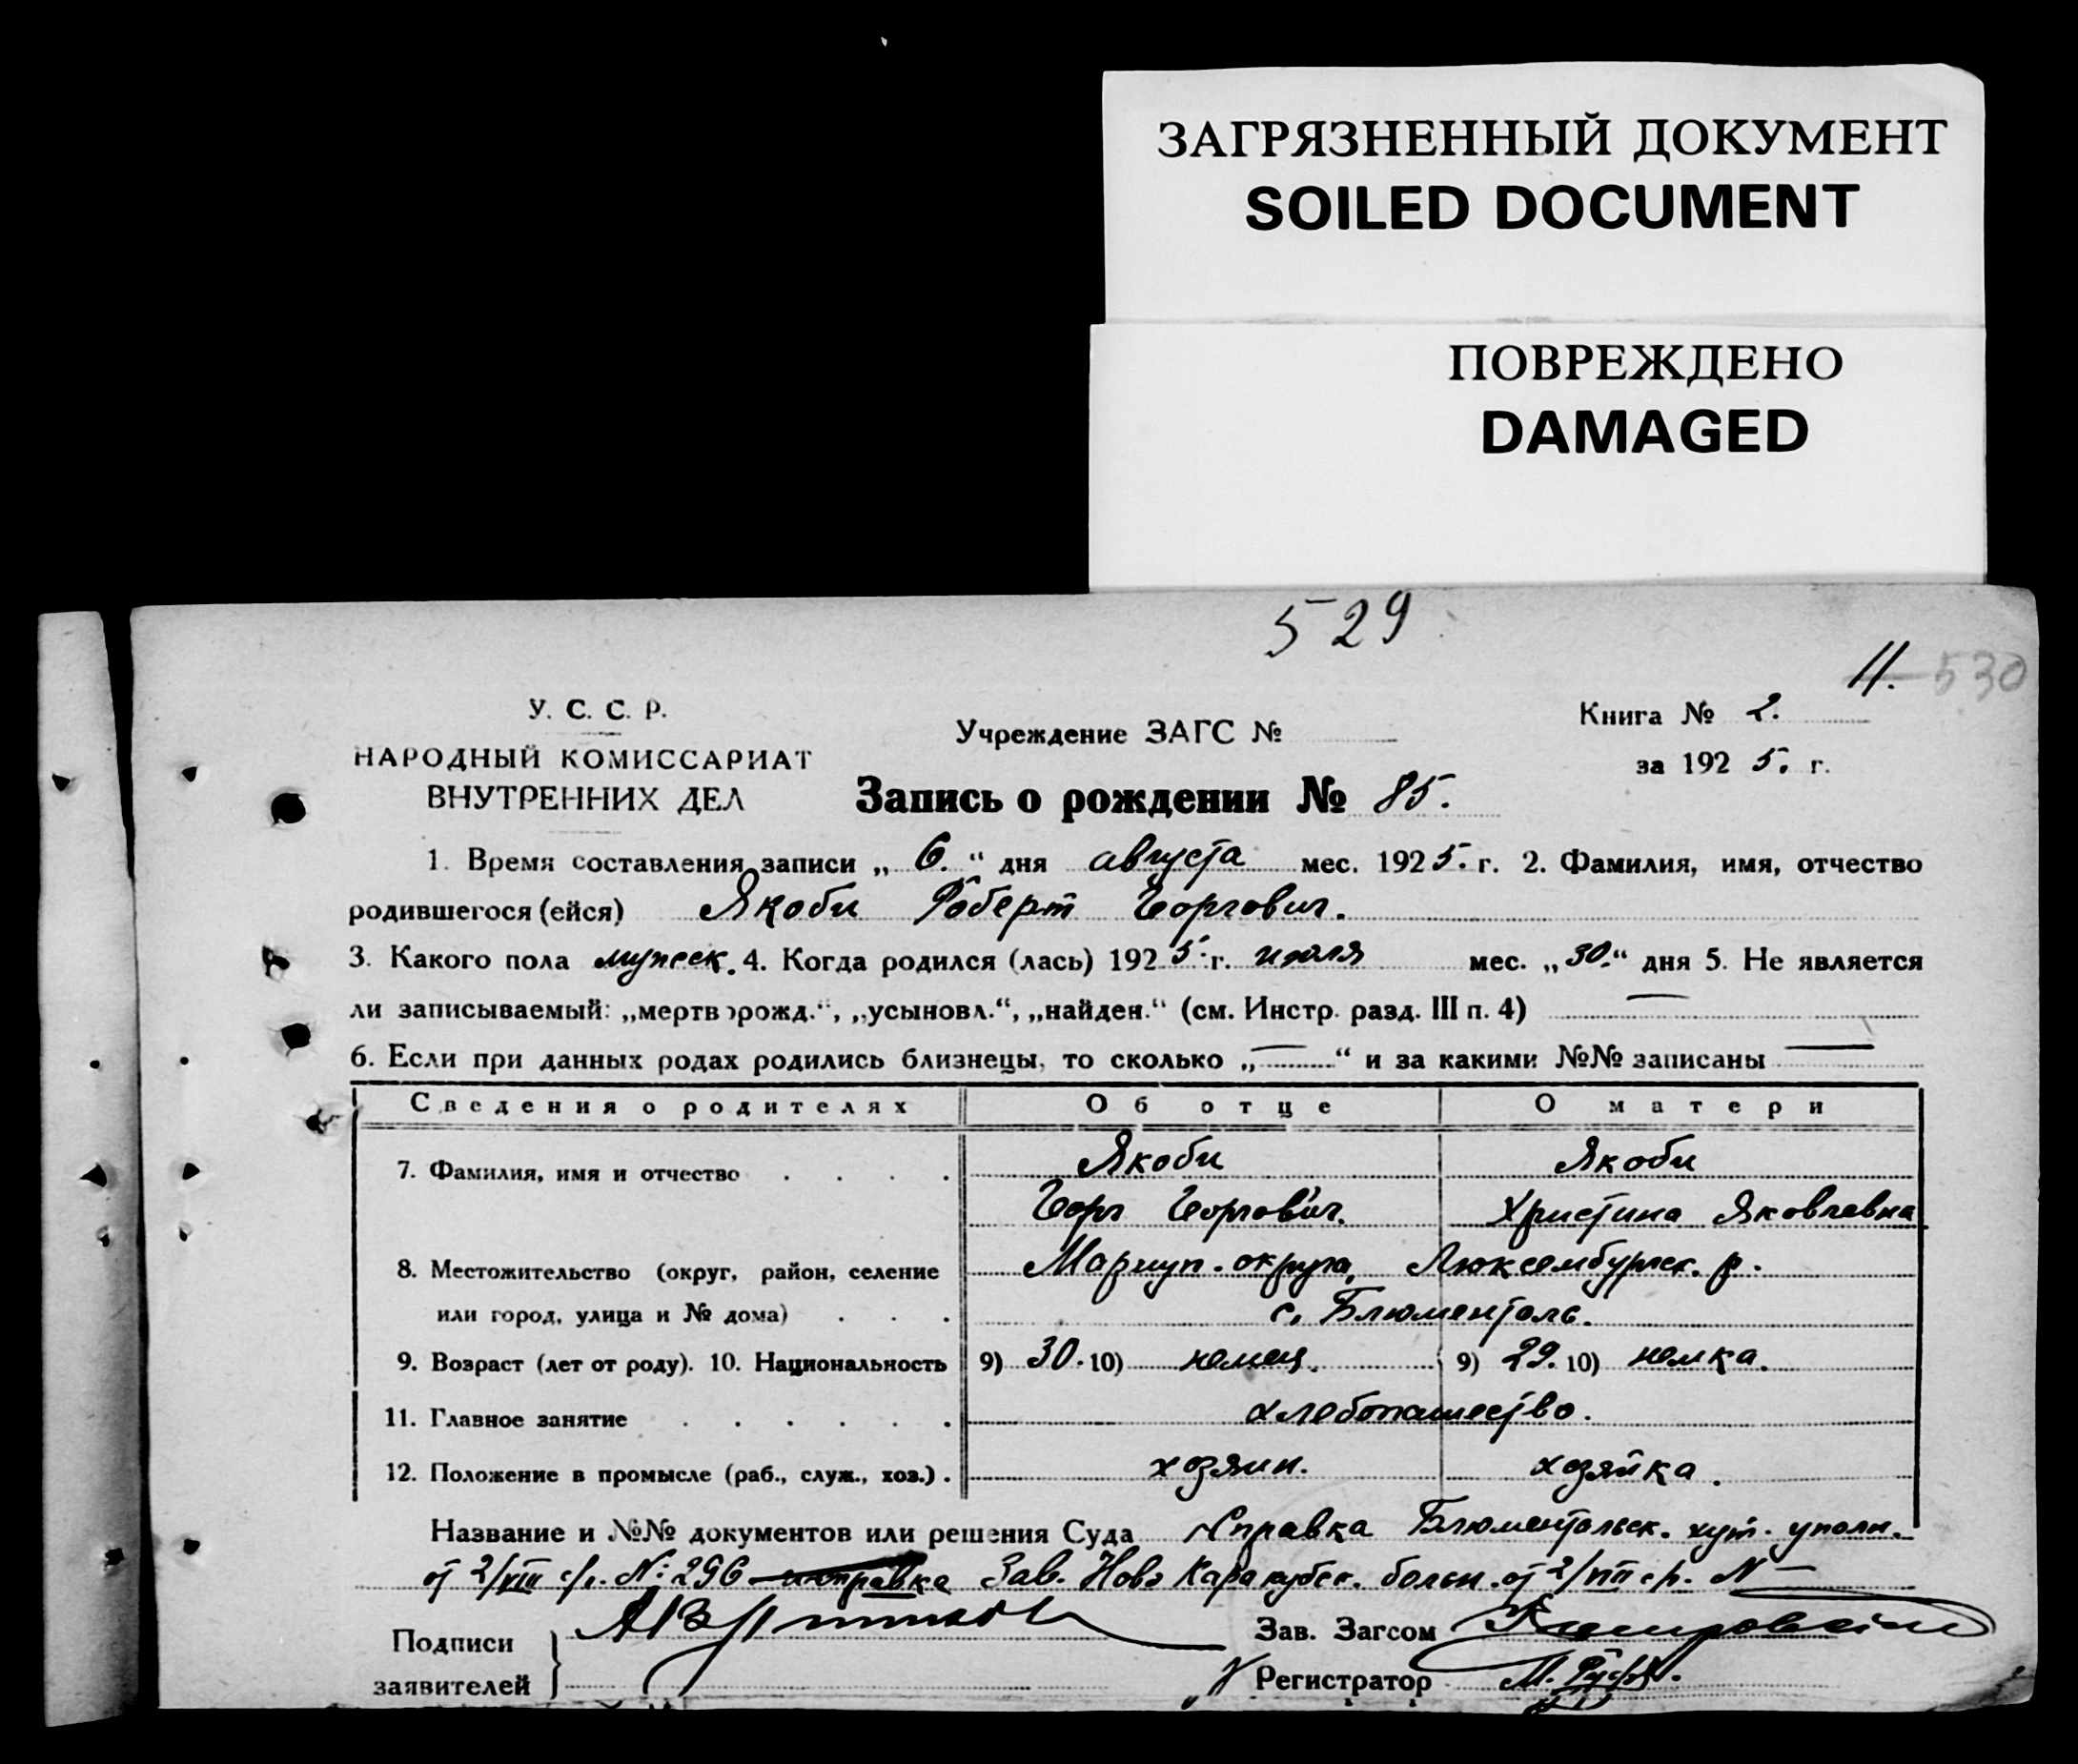 ЗАГРЯЗНЕННЫЙ ДОКУМЕНТ
SOILED DOCUMENT
ПОВРЕЖДЕНО
DAMAGED
529
11. 530
У. С. С. Р.
НАРОДНЫЙ КОМИССАРИАТ
ВНУТРЕННИХ ДЕЛ
Учреждение ЗАГС №
Книга № 2.
за 1925. г.
Запись о рождении № 85.
1. Время составления записи „ 6. “ дня августа мес. 1925. г. 2. Фамилия, имя, отчество
родившегося (ейся) Якоби Роберт Георгович.
3. Какого пола мужеск. 4. Когда родился (лась) 1925. г. июля мес. „30.“ дня 5. Не является
ли записываемый: „мертворожд.“, „усыновл.“, „найден.“ (см. Инстр. разд. III п. 4) —
6. Если при данных родах родились близнецы, то сколько „—“ и за какими №№ записаны —
Сведения о родителях Об отце О матери
7. Фамилия, имя и отчество . . . . Якоби Якоби
Георг Георгович. Христина Яковлевна
8. Местожительство (округ, район, селение Мариуп. округа, Люксембургск. р.
или город, улица и № дома) . . . с. Блюменталь.
9. Возраст (лет от роду). 10. Национальность 9) 30. 10) немец. 9) 29. 10) немка.
11. Главное занятие . . . . . . хлебопашество.
12. Положение в промысле (раб., служ., хоз.) . хозяин. хозяйка.
Название и №№ документов или решения Суда Справка Блюментальск. хут. уполн.
от 2/VIII с/г. №: 296 справка Зав. Ново Каракубск. больн. от 2/VIII с/г. № —
Подписи
заявителей
Зав. Загсом
Регистратор М.